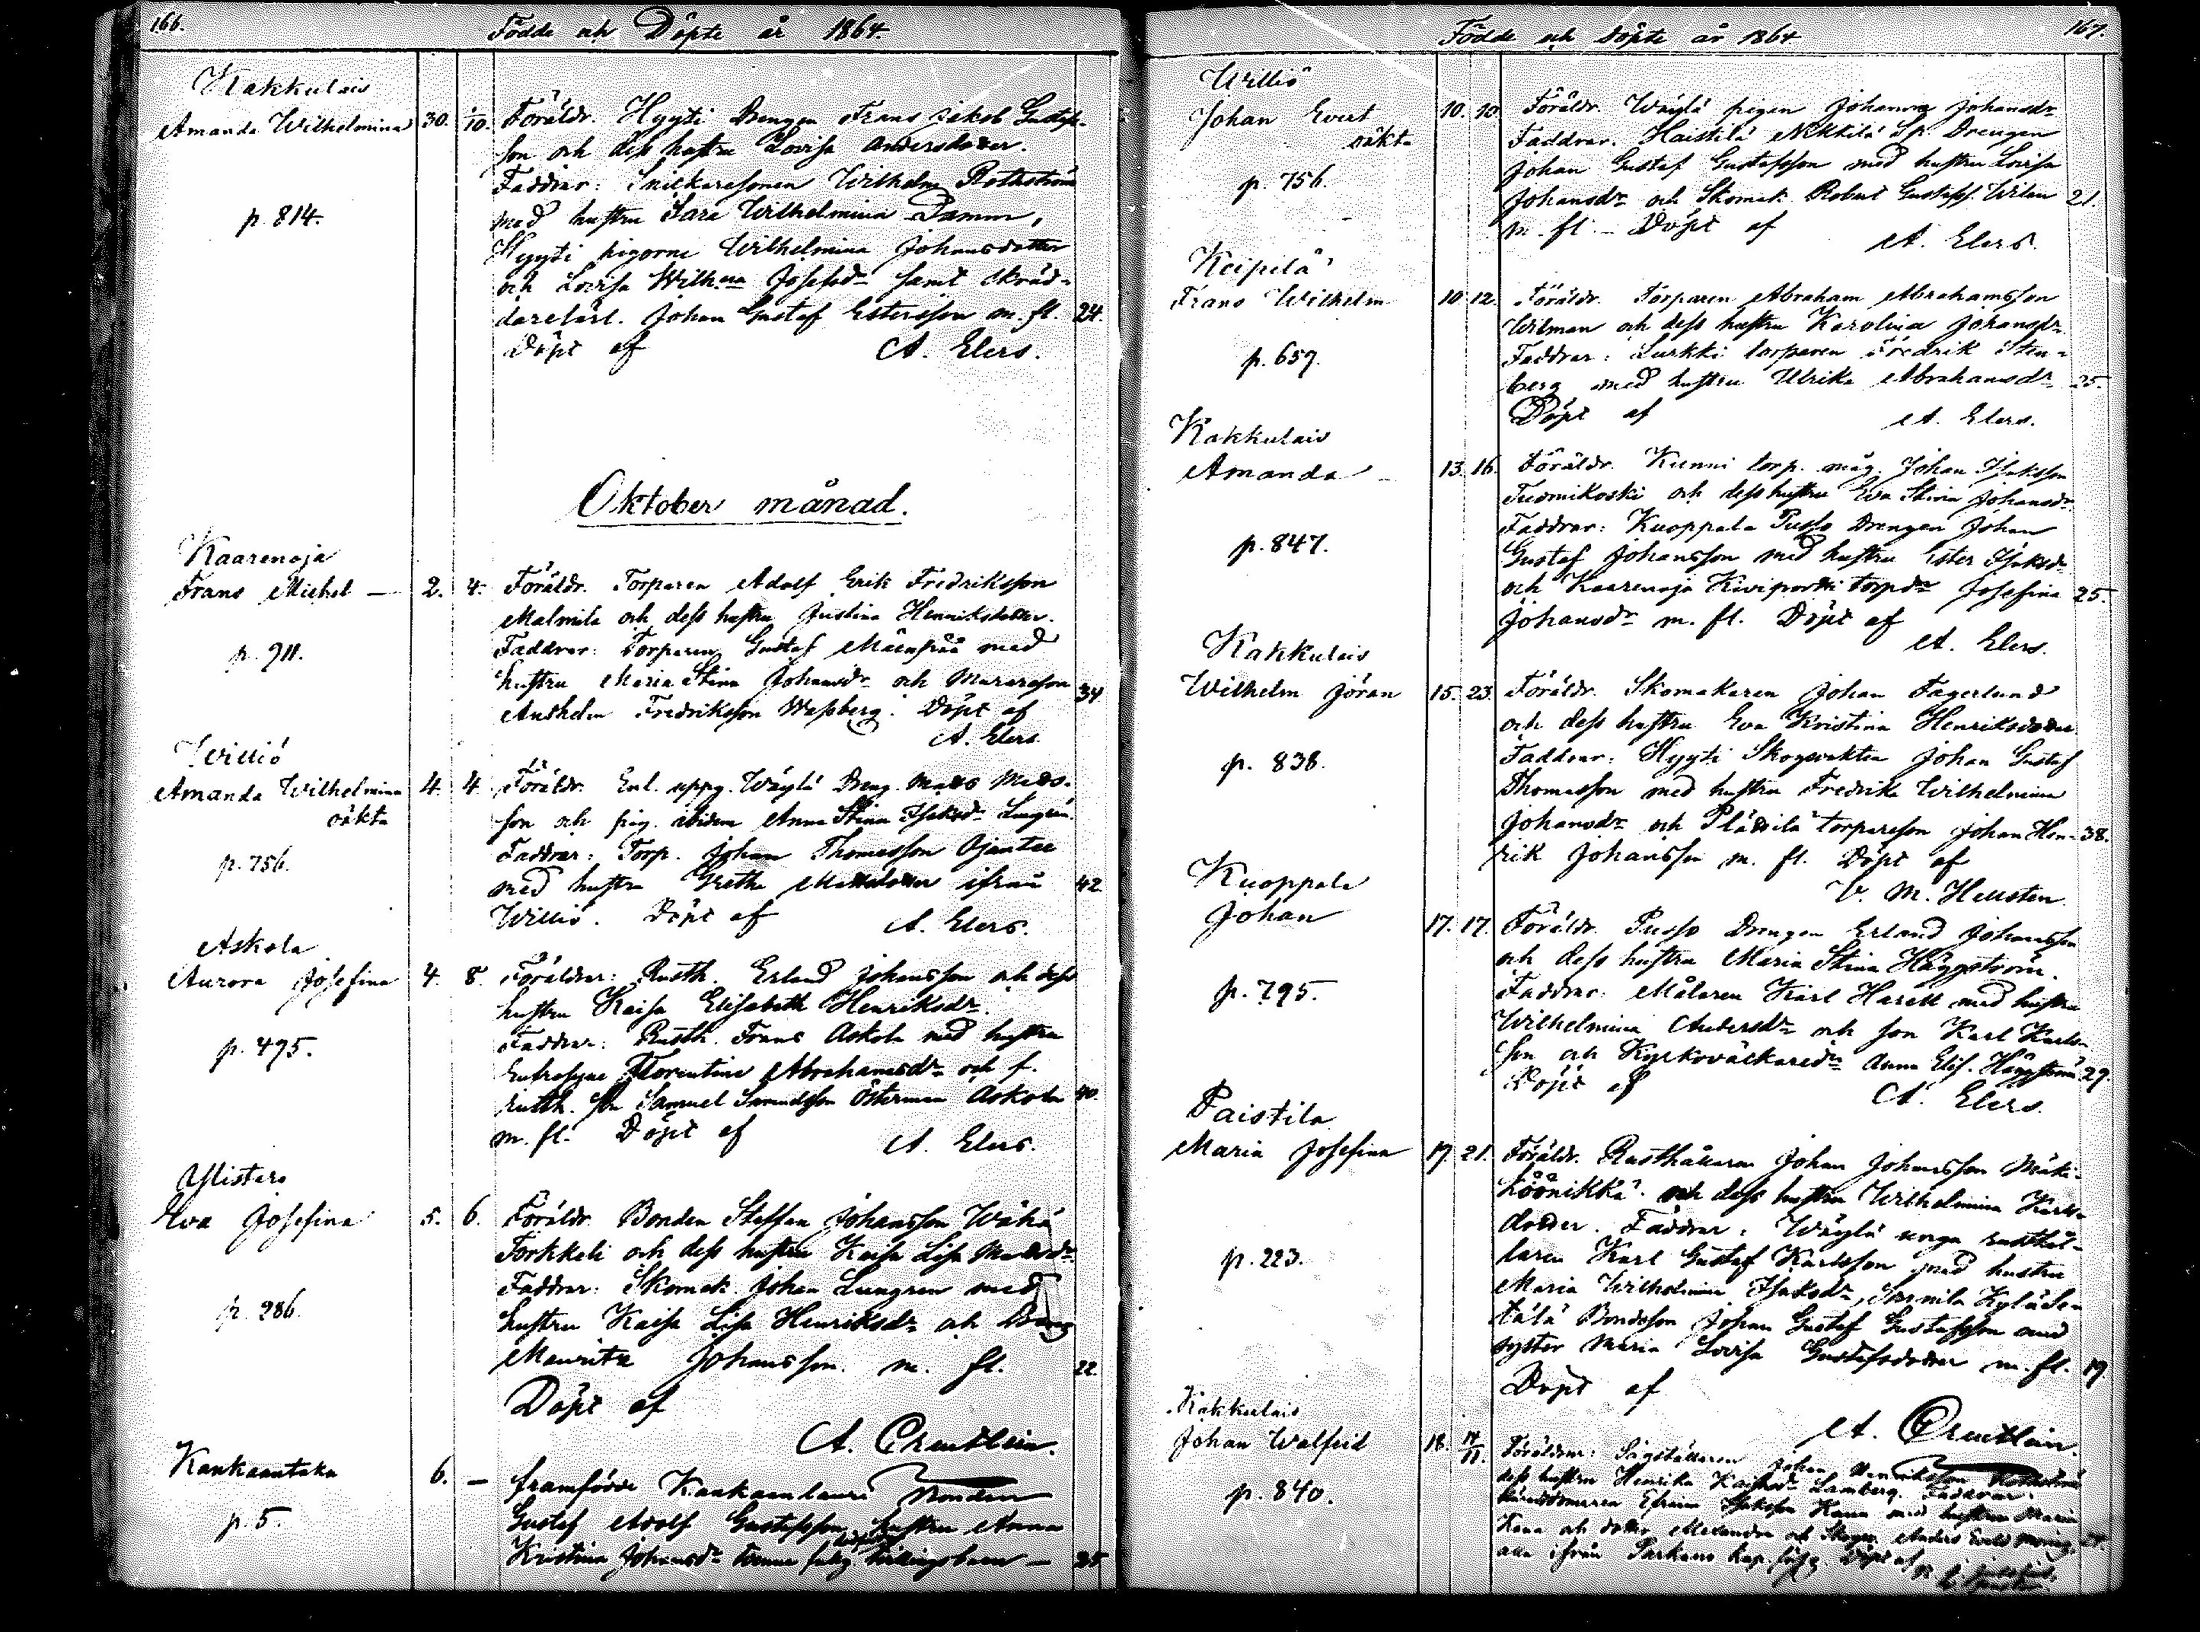 166.
Födde och Döpte år 1864
Kakkulais
Amanda Wilhelmina 30. 1/10. Föräldr. Hyyti Drengen Frans Jakob Gustafs-
son och dess hustru Lovisa Andersdotter.
Faddrar: Snickaresonen Wilhelm Rothström
p. 814. med hustru Sara Wilhelmina Damm,
Hyyti pigorne Wilhelmina Johansdotter
och Lovisa Wilhna Josefsdr samt skräd-
darelärl. Johan Gustaf Estersson m. fl. 24.
Döpt af A. Elers.
Oktober månad.
Kaarenoja
Frans Michel — 2. 4. Föräldr. Torparen Adolf Erik Fredriksson
Malmila och dess hustru Justina Henriksdotter.
p. 911. Faddrar: Torparen Gustaf Mäenpää med
hustru Maria Stina Johansdr och Murareson
Andhelm Fredriksson Wassberg. Döpt af 34
A. Elers.
Williö
Amanda Wilhelmina 4. 4. Föräldr. Enl. uppg. Wäylä Dreng Matts Matts-
oäkta son och pig. ibidem Anna Stina Isaksdr Lungrén.
p. 756. Faddrar: Torp. Johan Thomasson Ojantee
med hustru Greta Mattsdotter ifrån 42
Williö. Döpt af A. Elers.
Askola
Aurora Josefina 4. 8. Föräldrar: Rusth. Erland Johansson och dess
hustru Kaisa Elisabeth Henriksdr.
p. 495. Faddrar: Rusth. Frans Askola med hustru
Eufrosyne Florentine Abrahamsdr och f.
rusth. son Samuel Samuelsson Österman Askola 40.
m. fl. Döpt af A. Elers.
Ylistaro
Eva Josefina 5. 6. Föräldr. Bonden Staffan Johansson Wähä
Torkkeli och dess hustru Kaisa Lisa Mattsdr.
p. 286. Faddrar: Skomak. Johan Lungren med
hustru Kaisa Lisa Henriksdr och Dreng
Mauritz Johansson. m. fl. 22.
Döpt af
Kankaantaka 6. — framfödde Kankaanlauri Bonden
p. 5. Gustaf Adolf Gustafsson hustru Anna
Kristina Johansdr tvenne tvillingsbarn — 35
Födde och Döpte år 1864
167.
Williö
Johan Evert 10. 10. Föräldr. Wäylä pigan Johanna Johansdr
oäkta Faddrar: Haistila Nikkilä Sp. Drengen
p. 756. Johan Gustaf Gustafsson med hustru Lovisa
Johansdr och Skomak. Robert Gustafss. Wilen 21.
m. fl. — Döpt af A. Elers.
Keipilä
Frans Wilhelm 10. 12. Föräldr. Torparen Abraham Abrahamsson
Wilman och dess hustru Karolina Johansdr.
p. 659. Faddrar: Surkki torparen Fredrik Sten-
berg med hustru Ulrika Abrahamsdr 25.
Döpt af A. Elers.
Kakkulais
Amanda — 13. 16. Föräldr. Kunni torp. måg. Johan Isaksson
Tuomikoski och dess hustru Eva Stina Johansdr.
p. 847. Faddrar: Kuoppala Pusso Drengen Johan
Gustaf Johansson med hustru Ester Isaksdr
och Kaarenoja Kiviportti torpdr Josefina 25.
Johansdr m. fl. Döpt af
A. Elers.
Kakkulais
Wilhelm Jöran 15. 23. Föräldr. Skomakaren Johan Fagerlund
och dess hustru Eva Kristina Henriksdotter
p. 838. Faddrar: Hyyti Skogsvakten Johan Gustaf
Thomasson med hustru Fredrika Wilhelmina
Johansdr och torpareson Johan Hen- 38.
rik Johansson m. fl. Döpt af
V. M. Hellsten.
Kuoppala
Johan 17. 17. Föräldr. Pusso Drengen Erland Johansson
och dess hustru Maria Stina Häggström.
p. 795. Faddrar: Målaren Karl Harell med hustru
Wilhelmina Andersdr och son Karl Karls-
son och Kyrkoväckaredr Anna Elis. Häggström 29.
Döpt af A. Elers.
Paistila
Maria Josefina 19. 21. Föräldr. Rusthållaren Johan Johansson Mäki-
Löönikkä och dess hustru Wilhelmina Karls-
dotter. Faddrar: Wäylä unga rusthål-
p. 223. laren Karl Gustaf Karlsson med hustru
Maria Wilhelmina Isaksdr, Kyläse-
tälä Bondsson Johan Gustaf Gustafsson med
syster Maria Lovisa Gustafsdotter m. fl. 19
Döpt af
Kakkulais
Johan Walfrid 18. Föräldrar: Johan Henriksson
p. 840. dess hustru Henrika Lamberg. Faddrar:
Efraim Isaksson Kana med hustrun Maria
Kana och dotter Alexandra och Anders
alla ifrån Sarkans kap. förs. Döpt af